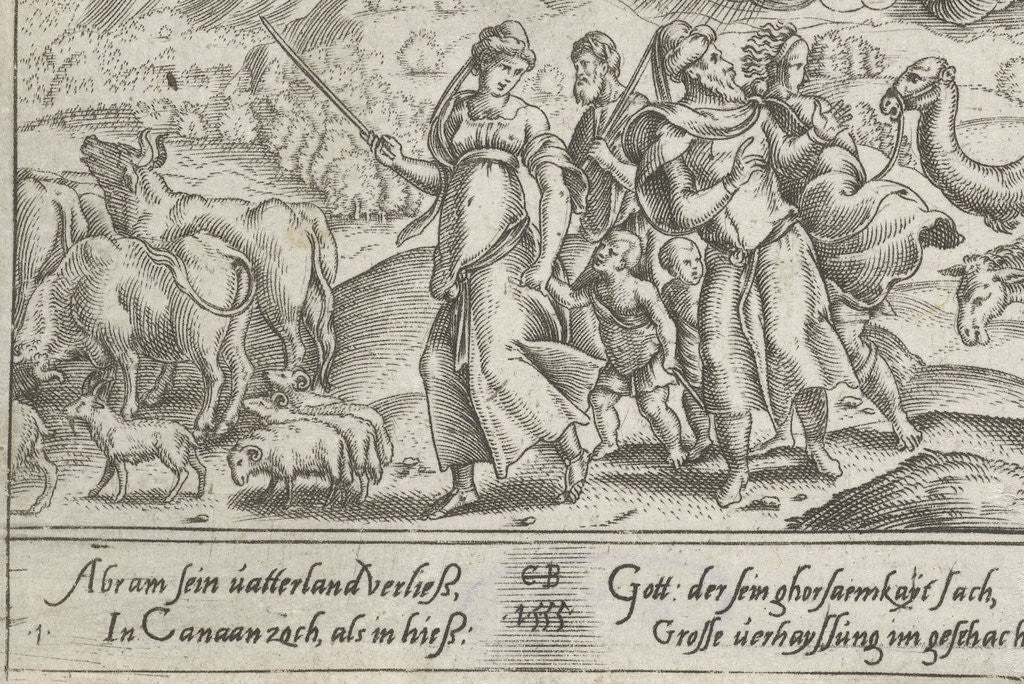 Abram sein vatterland verließ,
In Canaan zoch, als in hieß:
.1.
CB
.1555.
Gott: der sein ghorsaemkayt sach,
Grosse verhayssung im geschach